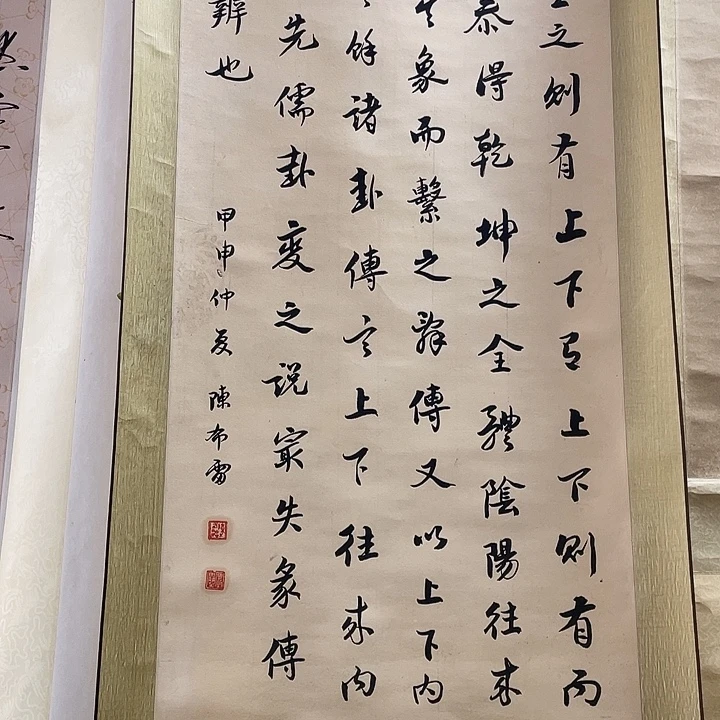 之則有上下有上下則有內
泰得乾坤之全體陰陽往來
象而繫之辭傳又以上下內
餘諸卦傳言上下往來內
先儒卦變之說最失彖傳
辨也
甲申仲夏 陳布雷